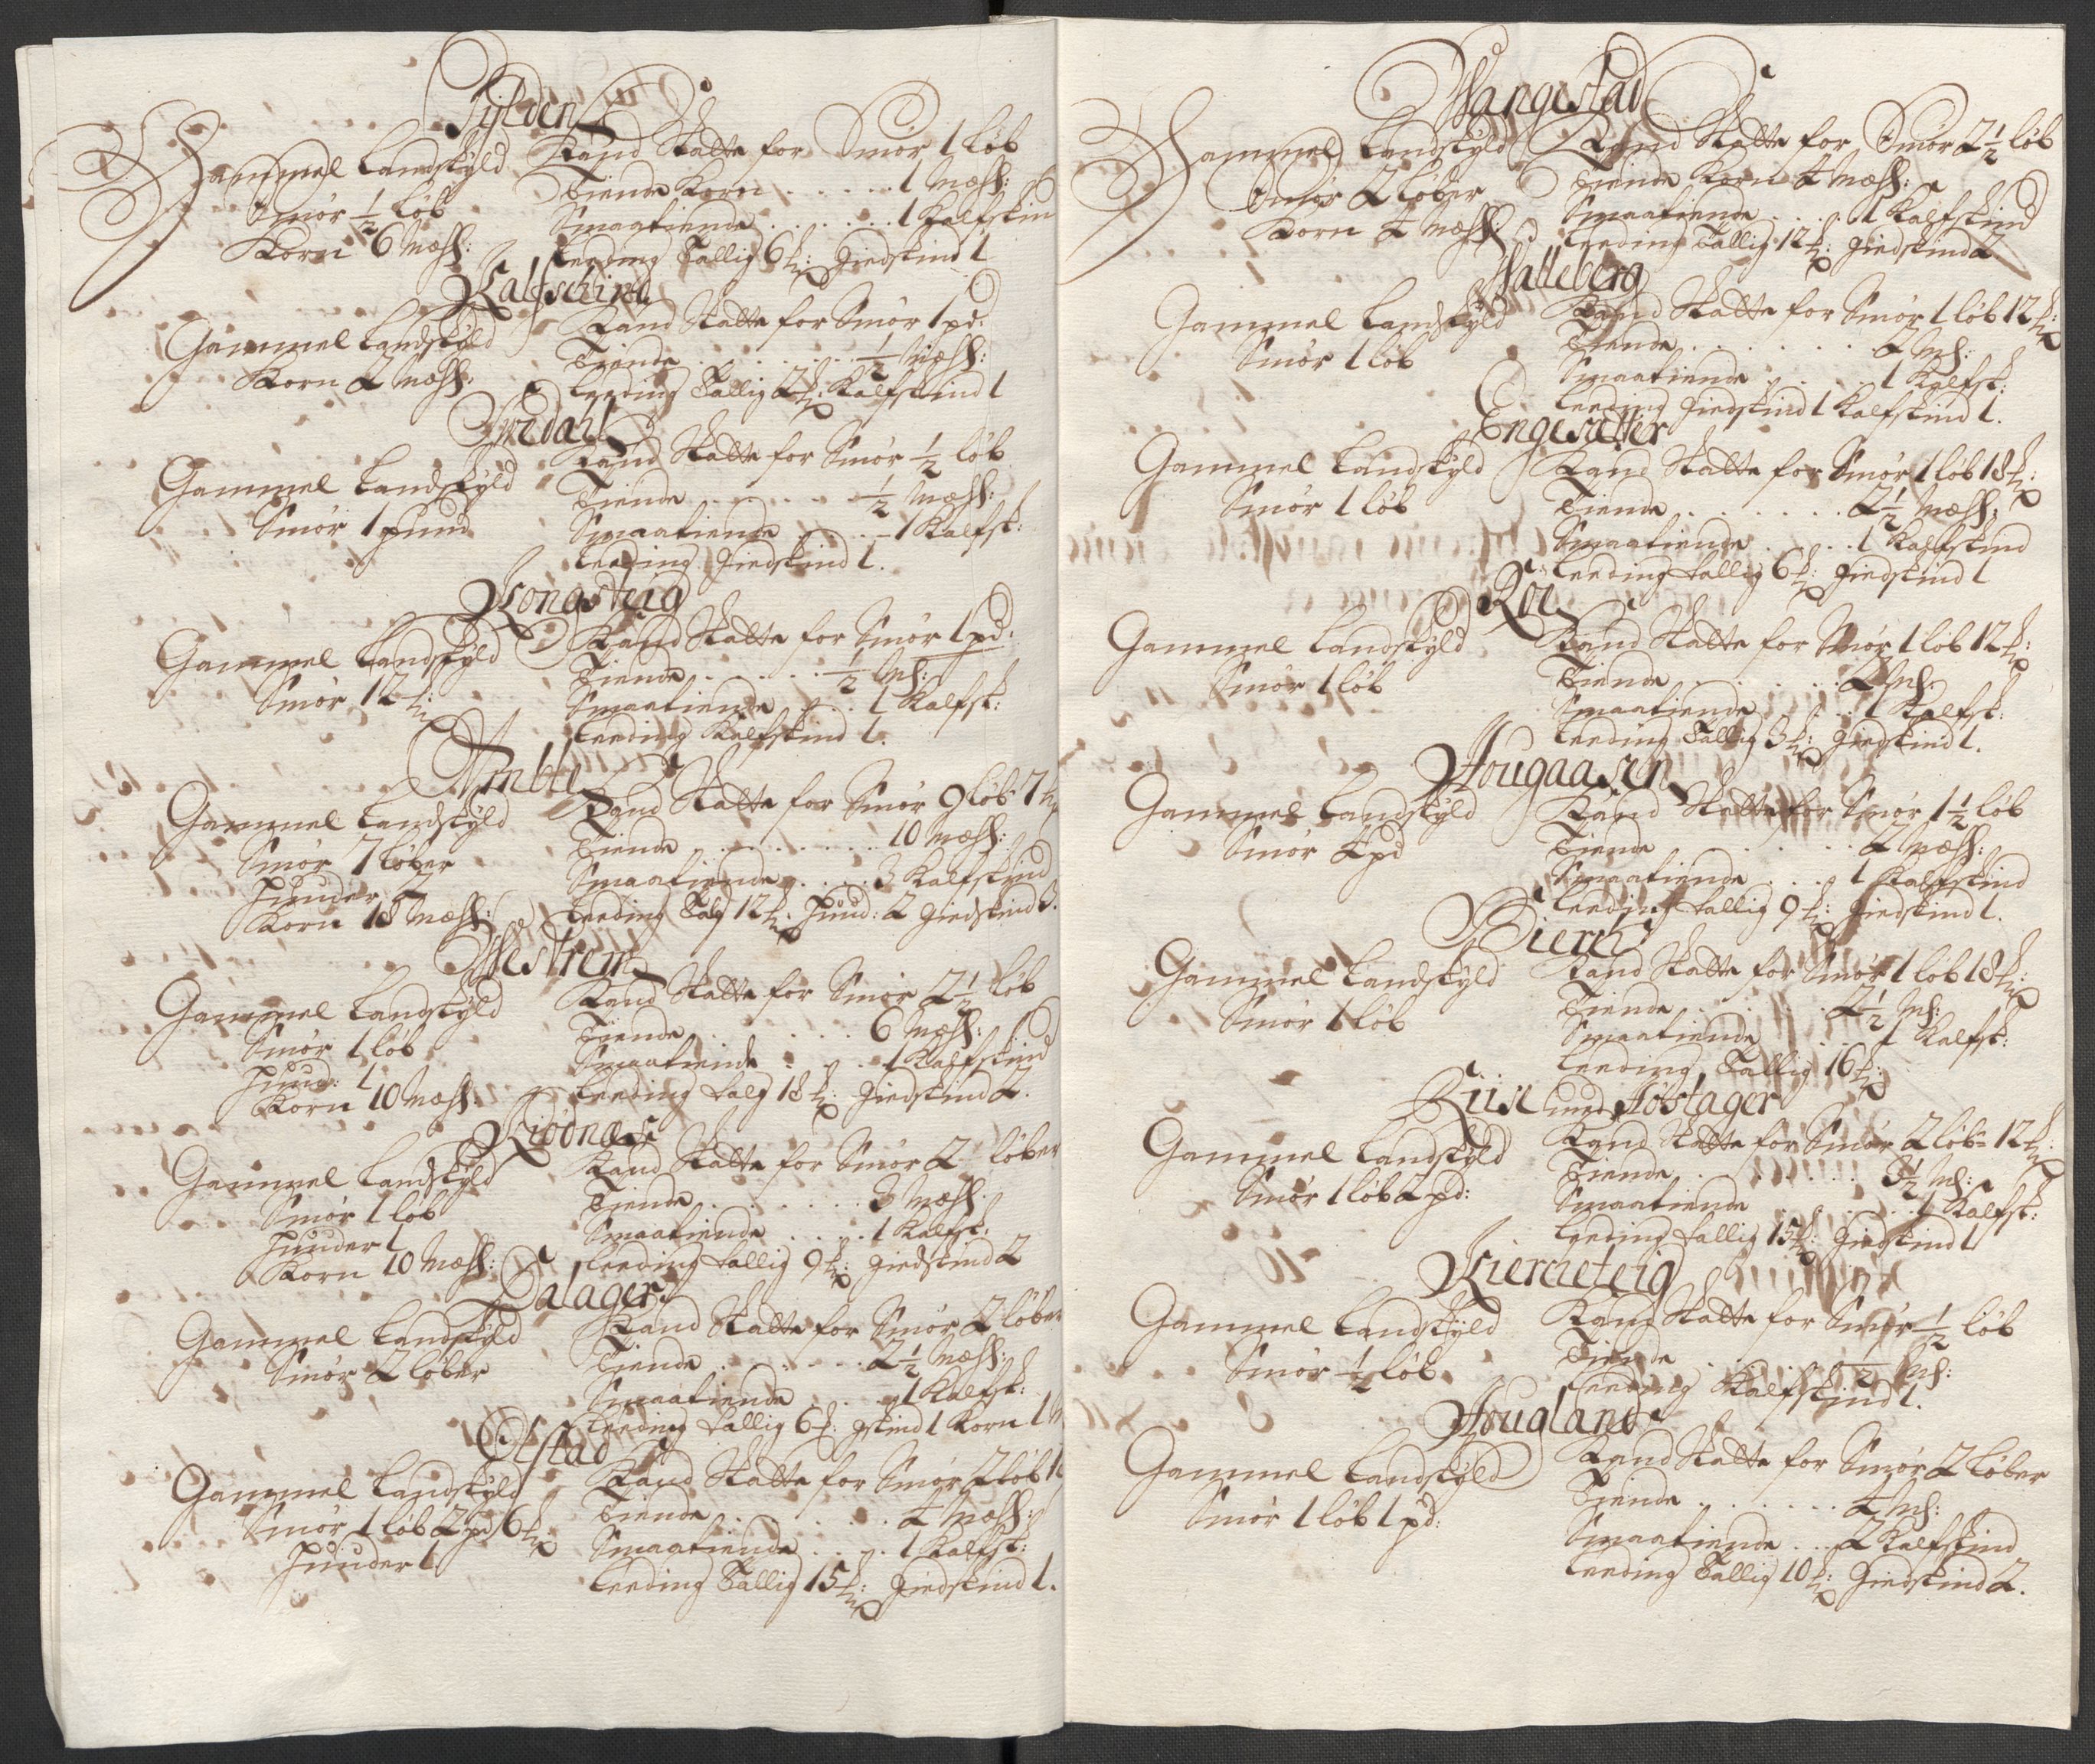 Sylden
Gammel Landskyld
Smør 1/2 løb
Korn 6 Mæhl:
Kand Skatte for Smør 1 løb
Tiende Korn . . . . . 1 Mæhl:
Smaatiende . . . . . . 1 Kalfskin
Leeding Tallig 6 ℔: Giedskind 1
Kalfschind
Gammel Landskyld
Korn 2 Mæhl:
Kand Skatte for Smør 1 pd:
Tiende . . . . . . 1/2 Mæhl:
Leeding Tallig 2 ℔: Kalfskind 1
Gammel Landskyld
Smør 1 pund
Kand Skatte for Smør 1/2 løb
Tiende . . . . . 1/2 Mæhl:
Smaatiende . . . . 1 Kalfsk:
Leeding Giedskind 1.
Kongsteig
Gammel Landskyld
Smør 12 ℔:
Kand Skatte for Smør 1 pd.
Tiende . . . . . 1/2 Mhl:
Smaatiende . . . 1 Kalfsk:
Leeding Kalfskind 1.
Amble
Gammel Landskyld
Smør 7 løber
Huuder 2
Korn 18 Mæhl:
Kand Skatte for Smør 9 løb 7 ℔
Tiende . . . . . . . . 10 Mæhl:
Smaatiende . . . . 3 Kalfskind
Leeding Talg 12 ℔. Huud: 2 Giedskind 3.
Westrem
Gammel Landskyld
Smør 1 løb
Huud: 1
Korn 10 Mæhl.
Kand Skatte for Smør 2 1/2 løb
Tiende . . . . . . . 6 Mæhl:
Smaatiende . . . . 1 Kalfskind
Leeding Talg 18 ℔: Giedskind 2.
Kiodnæs
Gammel Landskyld
Smør 1 løb
Huuder 1
Korn 10 Mæhl:
Kand Skatte for Smør 2 løber
Tiende . . . . . . . 3 Mæhl.
Smaatiende . . . . 1 Kalfsk:
Leeding Tallig 9 ℔: Giedskind 2
Dalager
Gammel Landskyld
Smør 2 løber
Kand Skatte for Smør 2 løber
Tiende . . . . . . 2 1/2 Mæhl:
Smaatiende . . . . 1 Kalfsk:
Leeding Tallig 6 ℔: gskind 1 Korn 1
Olstad
Gammel Landskyld
Smør 1 løb 2 pd 6 ℔
Huuder 1.
Kand Skatte for Smør 2 løb
Tiende . . . . . . . 4 Mæhl:
Smaatiende . . . . 1 Kalfsk:
Leeding Tallig 15 ℔: Giedskind 1.
Wangestad
Gammel Landskyld
Smør 2 løber
Korn 4 Mæhl:
Kand Skatte for Smør 2 1/2 løb
Tiende Korn 4 Mæhl:
Smaatiende . . . . 1 Kalfskind
Leeding Tallig 12 ℔: Giedskind 2
Walleberg
Gammel Landskyld
Smør 1 løb
Kand Skatte for Smør 1 løb 12 ℔:
Tiende . . . . . . 2 Mhl:
Smaatiende . . . . 1 Kalfsk:
Leeding Giedskind 1 Kalfskind 1.
Engesætter
Gammel Landskyld
Smør 1 løb
Kand Skatte for Smør 1 løb 18 ℔:
Tiende . . . . . . 2 1/2 Mæhl:
Smaatiende . . . . 1 Kalfskind
Leeding Tallig 6 ℔: Giedskind 1
Roe
Gammel Landskyld
Smør 1 løb
Kand Skatte for Smør 1 løb 12 ℔:
Tiende . . . . . . 2 Mhl.
Smaatiende . . . . 1 Kalfsk:
Leeding Tallig 3 ℔: Giedskind 1.
Hougaasen
Gammel Landskyld
Smør 4 pd
Kand Skatte for Smør 1 1/2 løb
Tiende . . . . . 2 Mæhl:
Smaatiende . . . 1 Kalfskind
Leeding Tallig 9 ℔: Giedskind 1.
Gammel Landskyld
Smør 1 løb
Kand Skatte for Smør 1 løb 18 ℔:
Tiende . . . . . 4 1/2 Mhl:
Smaatiende . . . 1 Kalfsk:
Leeding Tallig 16 ℔:
Riise med Føstager
Gammel Landskyld
Smør 1 løb 2 pd:
Kand Skatte for Smør 2 løb 12 ℔:
Tiende . . . . . . 3 1/2 Mhl:
Smaatiende . . . . . 1 Kalfsk:
Leeding Tallig 15 ℔: Giedskind 1
Kierneteig
Gammel Landskyld
Smør 1/2 løb
Kand Skatte for Smør 1/2 løb
Tiende . . . . . 1/2 Mhl:
Leeding Kalfskind 1.
Hougland
Gammel Landskyld
Smør 1 løb 1 pd:
Kand Skatte for Smør 2 løber
Tiende . . . . . . 4 Mhl:
Smaatiende . . . 2 Kalfskind
Leeding Tallig 10 ℔: Giedskind 2.